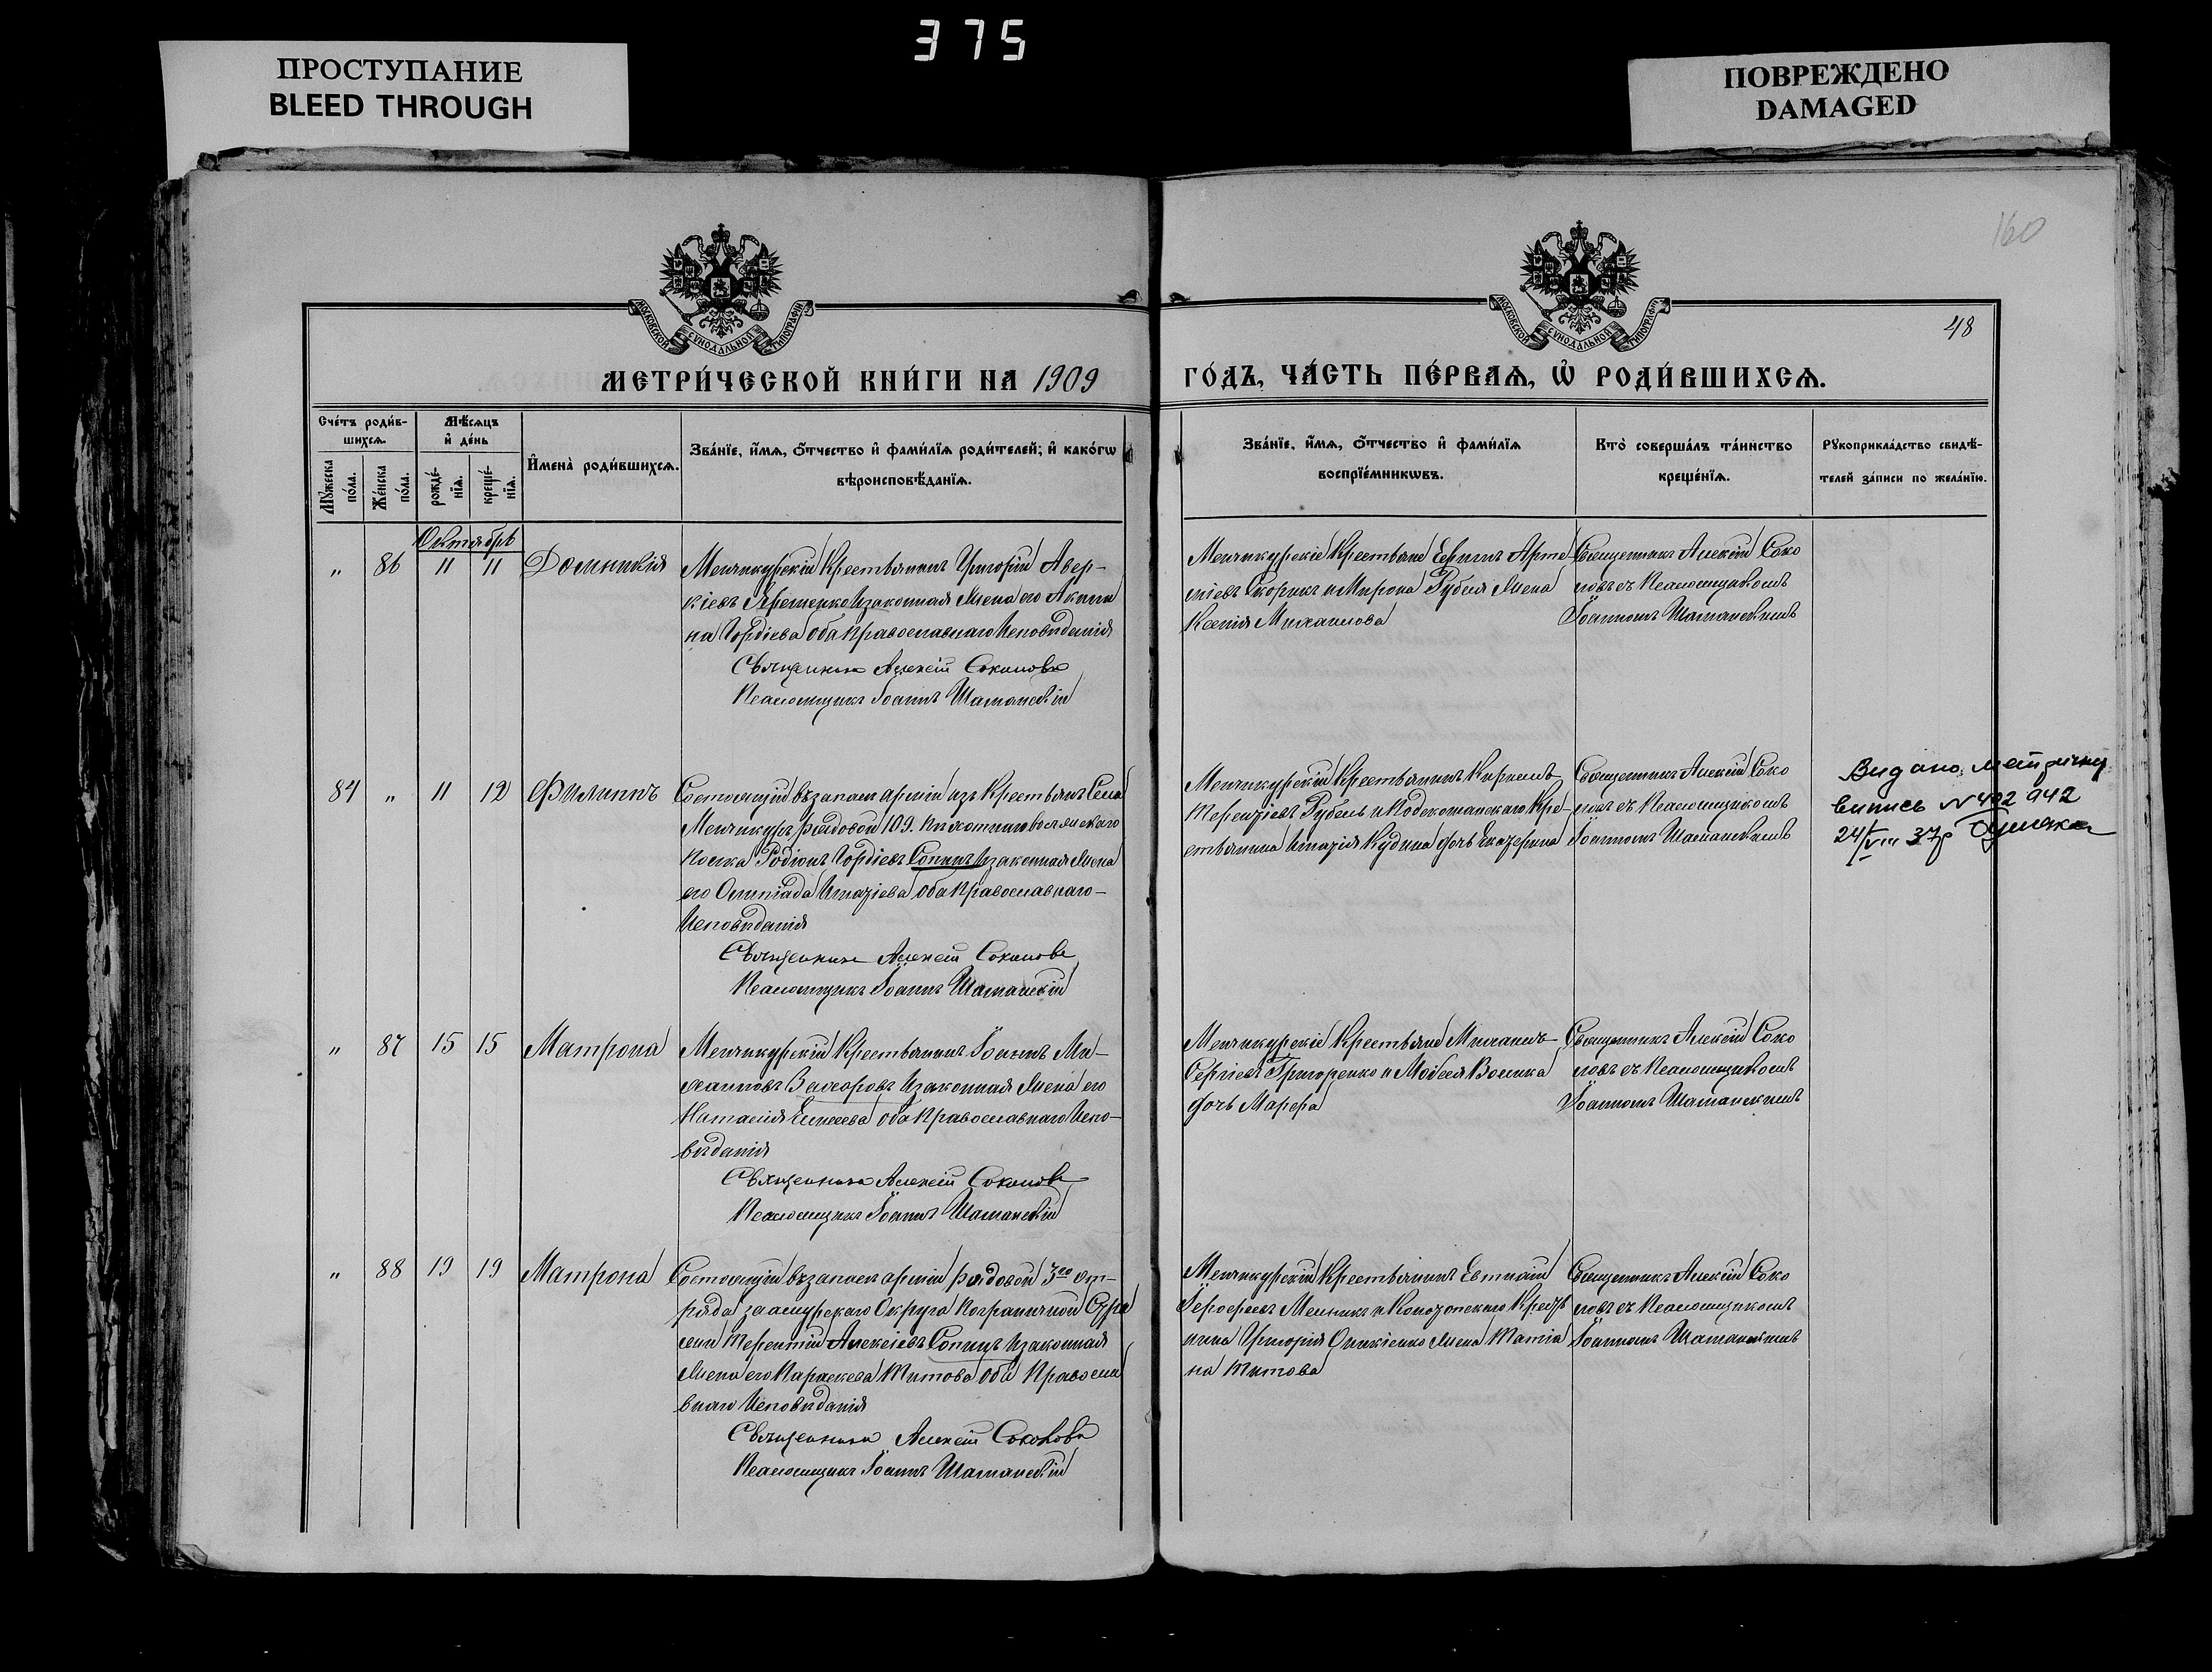 375
ПРОСТУПАНИЕ
BLEED THROUGH
ПОВРЕЖДЕНО
DAMAGED
160
48
МОСКОВСКОЙ СѴНОДАЛЬНОЙ ТИПОГРАФІИ
МОСКОВСКОЙ СѴНОДАЛЬНОЙ ТИПОГРАФІИ
МЕТРИ́ЧЕСКОЙ КНИ́ГИ НА 1909
ГО́ДЪ, ЧА́СТЬ ПЕ́РВАѦ, Ѡ҆ РОДИ́ВШИХСѦ.
Сче́тъ роди́в-
шихсѧ.
Мꙋ́жеска по́ла.
Же́нска по́ла.
Мѣ́сѧцъ
и҆ де́нь
рожде́-
нїѧ.
креще́-
нїѧ.
И҆мена̀ роди́вшихсѧ.
Зва́нїе, и҆́мѧ, ѻ҆́тчество и҆ фами́лїѧ роди́телей; и҆ како́гѡ
вѣроисповѣ́данїѧ.
Зва́нїе, и҆́мѧ, ѻ҆́тчество и҆ фами́лїѧ
воспрїе́мникѡвъ.
Кто̀ соверша́лъ та́инство
креще́нїѧ.
Рꙋкоприкла́дство свидѣ́-
телей за́писи по жела́нїю.
Октябрь
" 86 11 11 Домникія
Менчикурскій Крестьянинъ Григорій Авер-
кіевъ Яременко Изаконная Жена его Акили
на Гордіева оба Православнаго Исповѣданія
Священникъ Алексій Соколовъ
Псаломщикъ Іоаннъ Шаманскій
Менчикурскіе Крестьяне Ефимъ Арте
міевъ Скорикъ и Мирона Рубля Жена
Ксенія Михаилова
Священникъ Алексій Соко
ловъ съ Псаломщикомъ
Іоанномъ Шаманскимъ
84 " 11 12 Филиппъ
Состоящій въ запасѣ арміи изъ Крестьянъ Села
Менчикуръ рядовой 109. пѣхотнаго волжскаго
Полка Родіонъ Гордіевъ Сопинъ Изаконная Жена
его Олимпіада Игнатіева оба Православнаго
Исповѣданія
Священникъ Алексій Соколовъ
Псаломщикъ Іоаннъ Шаманскій
Менчикурскій Крестьянинъ Кириллъ
Терентіевъ Рубель и Кре-
стьянина Игнатія Кудина дочь Екатерина
Священникъ Алексій Соко
ловъ съ Псаломщикомъ
Іоанномъ Шаманскимъ
Видано метричну
випись N 402942
24/VIII 37р
" 87 15 15 Матрона
Менчикурскій Крестьянинъ Іоаннъ Ми-
хаиловъ Изаконная Жена его
Наталія Елисеева оба Православнаго Испо-
вѣданія
Священникъ Алексій Соколовъ
Псаломщикъ Іоаннъ Шаманскій
Менчикурскіе Крестьяне Михаилъ
Сергіевъ Григоренко и Мовсея Волика
дочь Марфа
Священникъ Алексій Соко
ловъ съ Псаломщикомъ
Іоанномъ Шаманскимъ
" 88 19 19 Матрона
Состоящій въ запасѣ арміи рядовой 3го от-
ряда заамурскаго Округа Пограничной Стра
жи Терентій Алексіевъ Сопинъ Изаконная
Жена его Параскева Титова оба Правосла
внаго Исповѣданія
Священникъ Алексій Соколовъ
Псаломщикъ Іоаннъ Шаманскій
Менчикурскій Крестьянинъ Евтихій
Іерофеевъ Мельникъ и Конотопскаго Кресть
нина Григорія Жена Татія
на Титова
Священникъ Алексій Соко
ловъ съ Псаломщикомъ
Іоанномъ Шаманскимъ